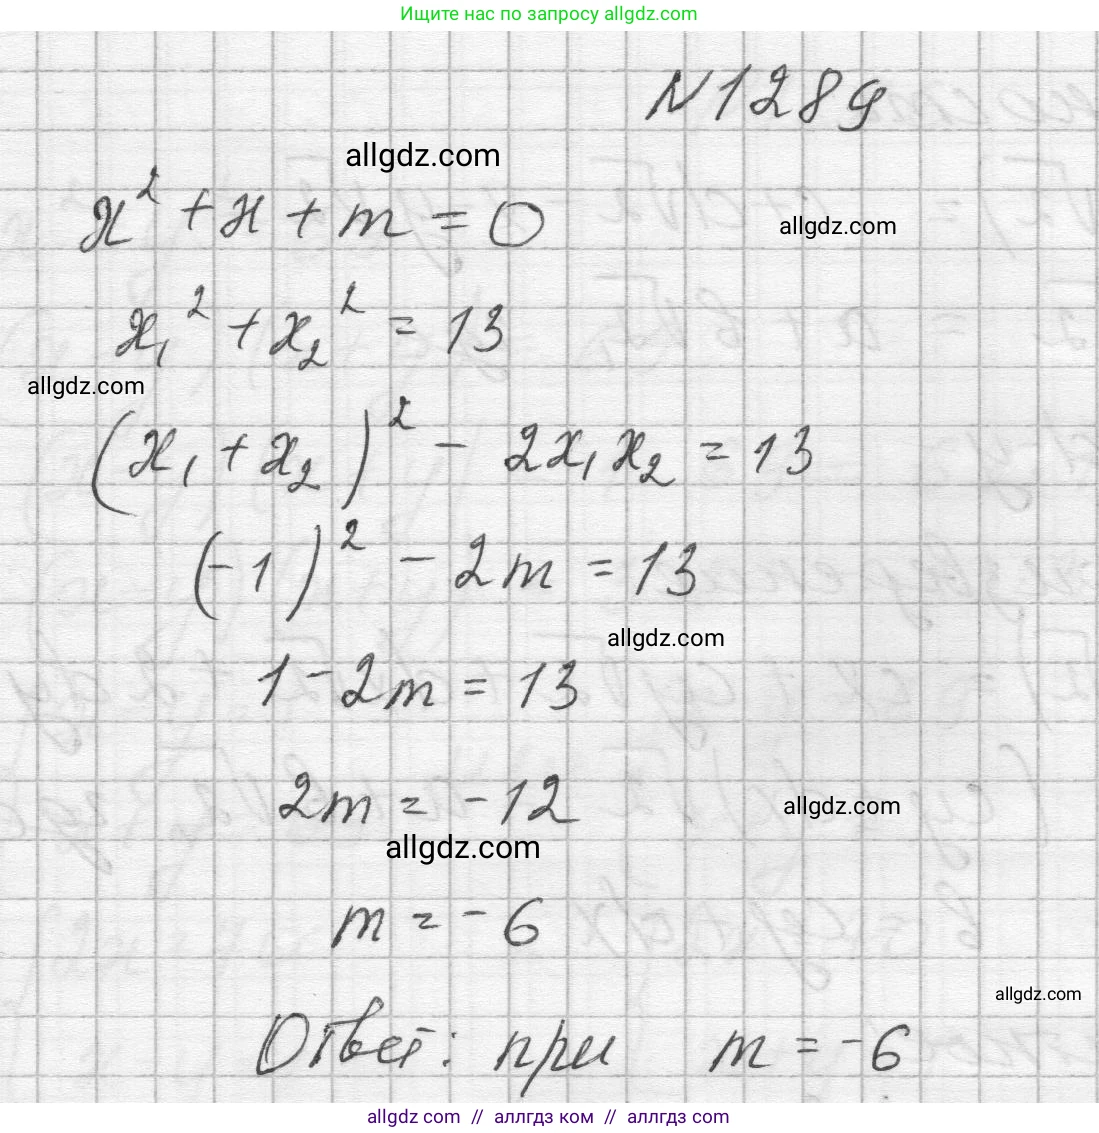 Ищите нас по запросу allgdz.com
N1289
allgdz.com
x² + x + m = 0
allgdz.com
x₁² + x₂² = 13
allgdz.com
(x₁ + x₂)² - 2x₁x₂ = 13
(-1)² - 2m = 13
allgdz.com
1 - 2m = 13
2m = -12
allgdz.com
allgdz.com
m = -6
allgdz.com
Ответ: при m = -6
allgdz.com // аллгдз ком // аллгдз.com